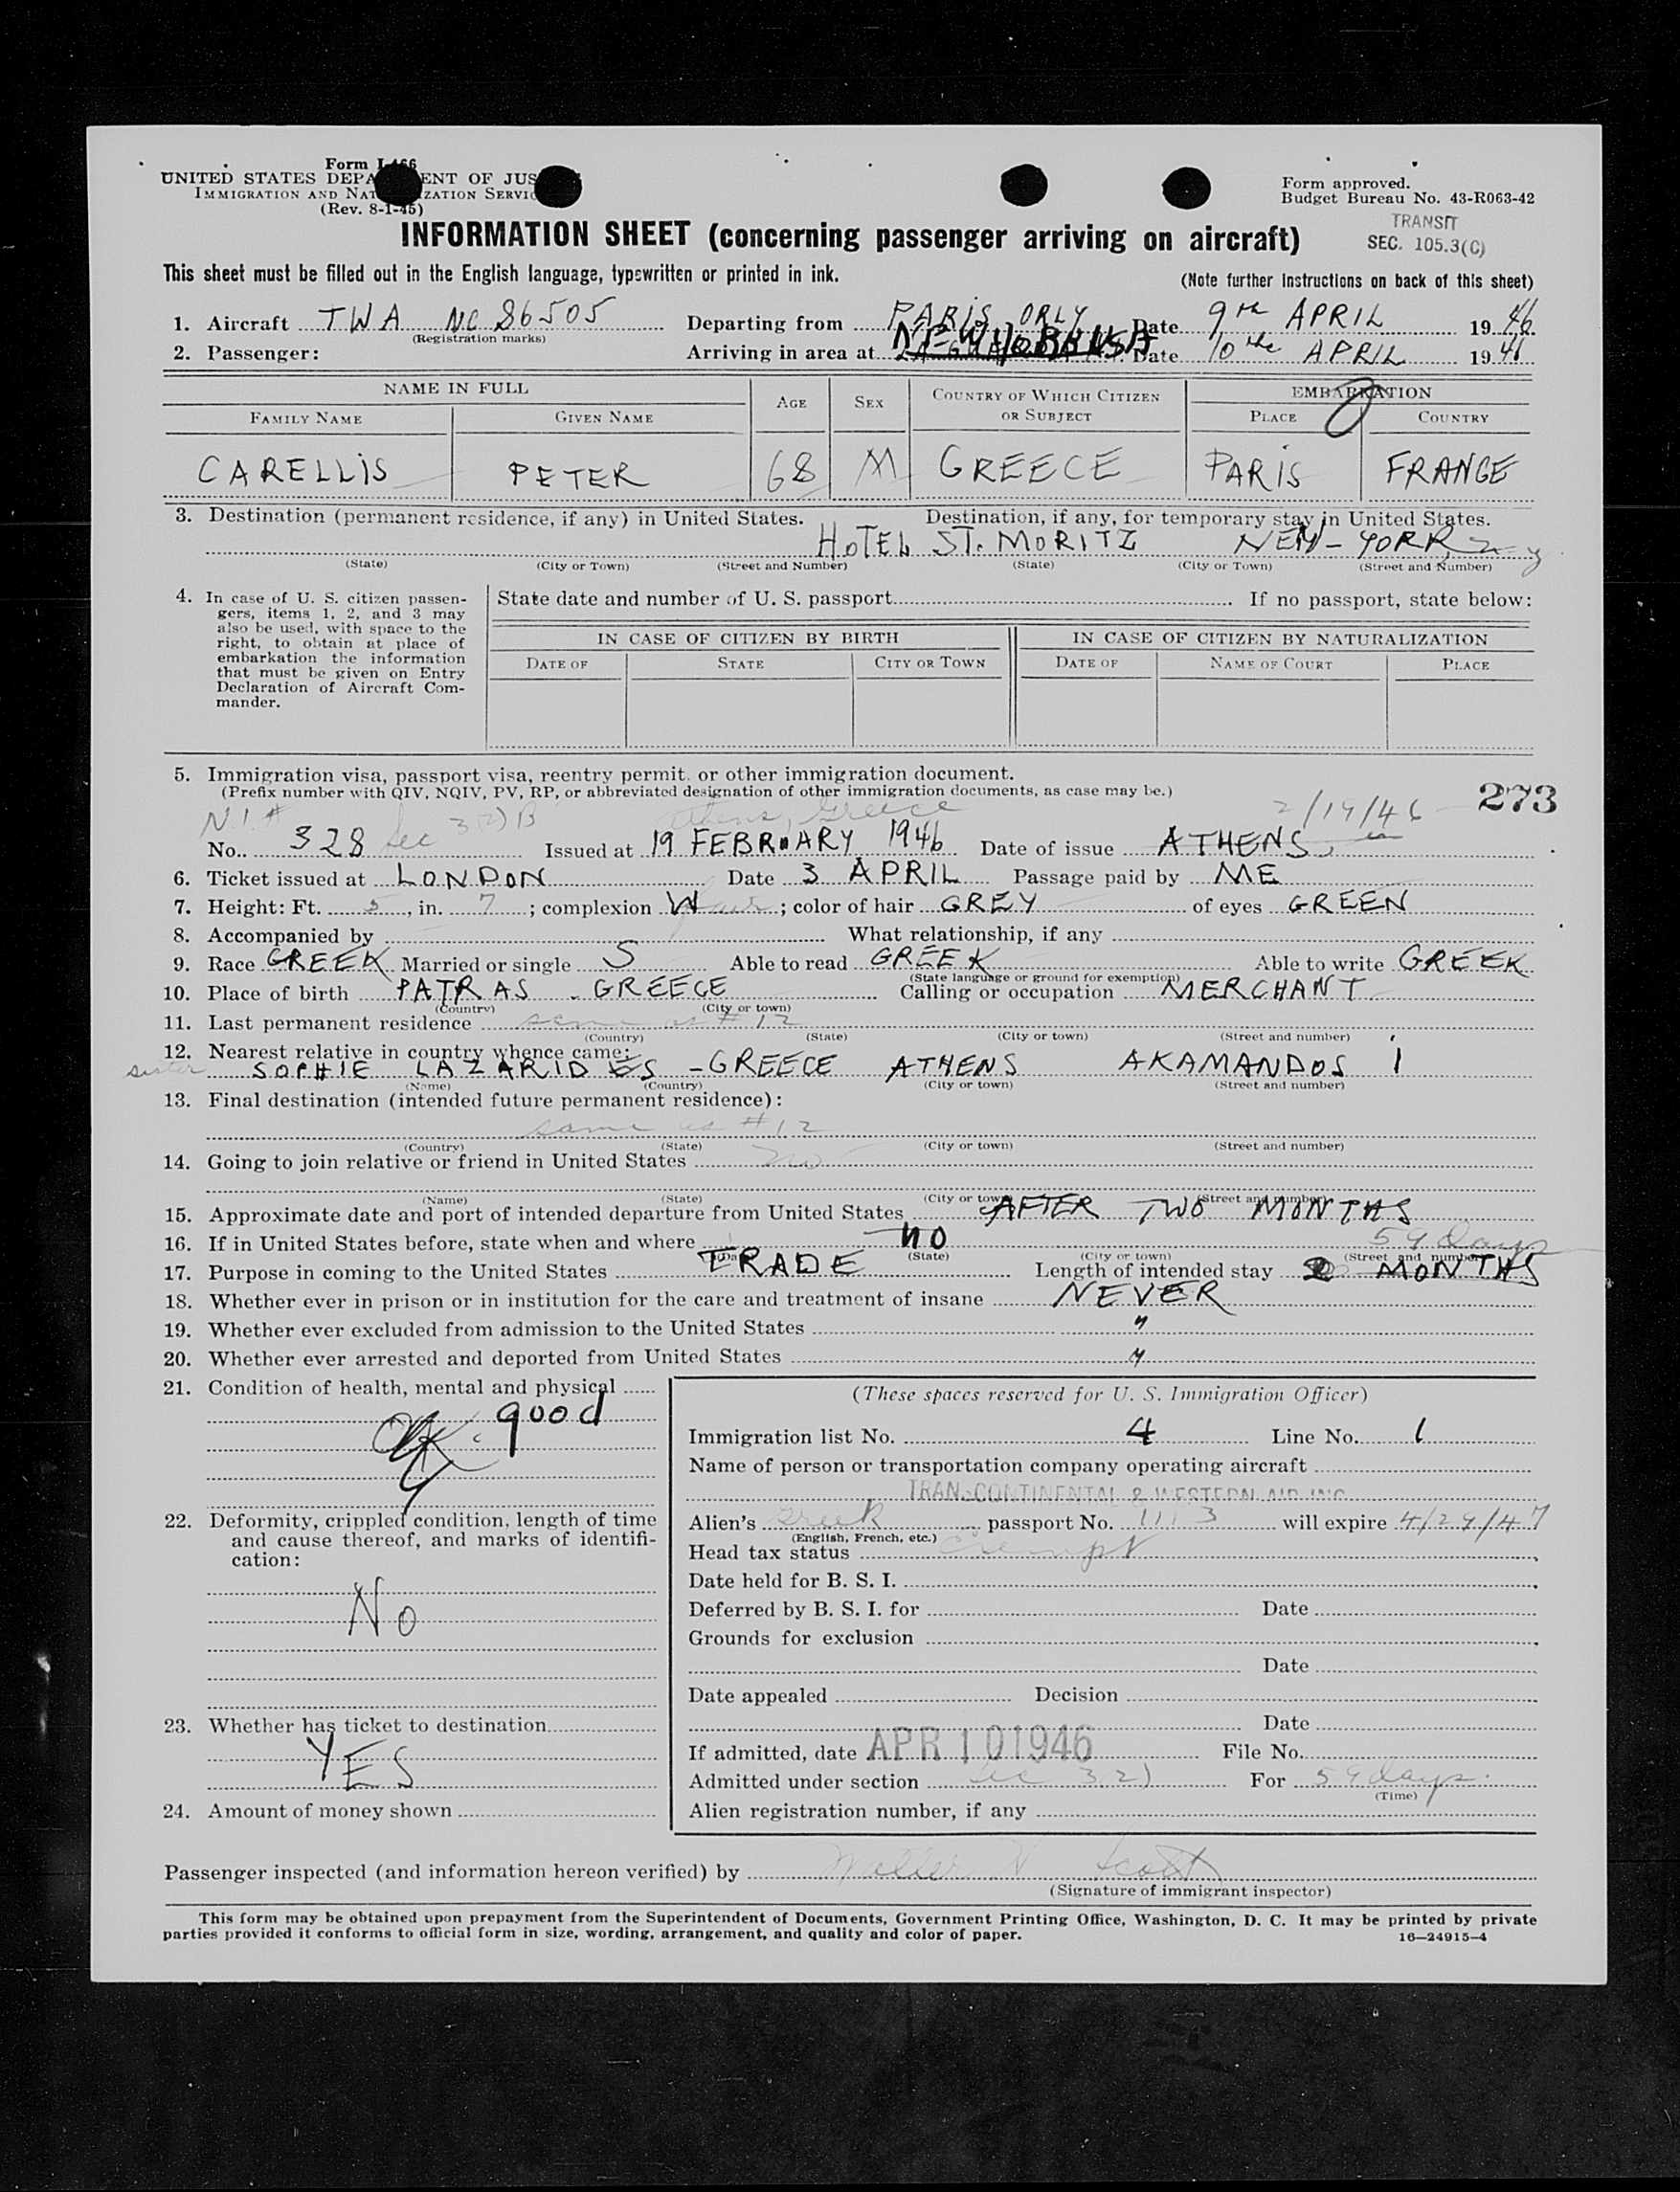 Form I-466
UNITED STATES DEPARTMENT OF JUSTICE
IMMIGRATION AND NATURALIZATION SERVICE
(Rev. 8-1-45)
Form approved.
Budget Bureau No. 43-R063-42
TRANSIT
SEC. 105.3(C)
INFORMATION SHEET (concerning passenger arriving on aircraft)
This sheet must be filled out in the English language, typewritten or printed in ink.
(Note further instructions on back of this sheet)
1. Aircraft TWA NC 86505 Departing from PARIS ORLY Date 9th APRIL 1946
(Registration marks)
2. Passenger: Arriving in area at Date 10 the APRIL 1946
NAME IN FULL AGE SEX COUNTRY OF WHICH CITIZEN OR SUBJECT EMBARKATION
FAMILY NAME GIVEN NAME PLACE COUNTRY
CARELLIS PETER 68 M GREECE PARIS FRANCE
3. Destination (permanent residence, if any) in United States. Destination, if any, for temporary stay in United States.
HOTEL ST. MORITZ NEW-YORK
(State) (City or Town) (Street and Number) (State) (City or Town) (Street and Number)
4. In case of U. S. citizen passen-
gers, items 1, 2, and 3 may
also be used, with space to the
right, to obtain at place of
embarkation the information
that must be given on Entry
Declaration of Aircraft Com-
mander.
State date and number of U. S. passport If no passport, state below:
IN CASE OF CITIZEN BY BIRTH IN CASE OF CITIZEN BY NATURALIZATION
DATE OF STATE CITY OR TOWN DATE OF NAME OF COURT PLACE
5. Immigration visa, passport visa, reentry permit, or other immigration document.
(Prefix number with QIV, NQIV, PV, RP, or abbreviated designation of other immigration documents, as case may be.)
273
Athens, Greece 2/19/46
No. 328 Sec 3(2)B Issued at 19 FEBRUARY 1946 Date of issue ATHENS
6. Ticket issued at LONDON Date 3 APRIL Passage paid by ME
7. Height: Ft. 5, in. 7; complexion W; color of hair GREY of eyes GREEN
8. Accompanied by What relationship, if any
9. Race GREEK Married or single S Able to read GREEK Able to write GREEK
(State language or ground for exemption)
10. Place of birth PATRAS - GREECE Calling or occupation MERCHANT
(Country) (City or town)
11. Last permanent residence same as #12
(Country) (State) (City or town) (Street and number)
12. Nearest relative in country whence came:
sister SOPHIE LAZARIDES - GREECE ATHENS AKAMANDOS 1
(Name) (Country) (City or town) (Street and number)
13. Final destination (intended future permanent residence):
same as #12
(Country) (State) (City or town) (Street and number)
14. Going to join relative or friend in United States no
(Name) (State) (City or town) (Street and number)
15. Approximate date and port of intended departure from United States AFTER TWO MONTHS
16. If in United States before, state when and where NO
59 days
(State) (City or town) (Street and number)
17. Purpose in coming to the United States TRADE Length of intended stay 2 MONTHS
18. Whether ever in prison or in institution for the care and treatment of insane NEVER
19. Whether ever excluded from admission to the United States "
20. Whether ever arrested and deported from United States "
21. Condition of health, mental and physical
good
22. Deformity, crippled condition, length of time
and cause thereof, and marks of identifi-
cation:
No
23. Whether has ticket to destination
YES
24. Amount of money shown
(These spaces reserved for U. S. Immigration Officer)
Immigration list No. 4 Line No. 1
Name of person or transportation company operating aircraft
TRANSCONTINENTAL & WESTERN AIR INC
Alien's Greek passport No. 1113 will expire 4/29/47
(English, French, etc.)
Head tax status exempt
Date held for B. S. I.
Deferred by B. S. I. for Date
Grounds for exclusion
Date
Date appealed Decision
Date
If admitted, date APR 10 1946 File No.
Admitted under section Sec 3(2) For 59 days.
(Time)
Alien registration number, if any
Passenger inspected (and information hereon verified) by Scott
(Signature of immigrant inspector)
This form may be obtained upon prepayment from the Superintendent of Documents, Government Printing Office, Washington, D. C. It may be printed by private
parties provided it conforms to official form in size, wording, arrangement, and quality and color of paper.
16—24915-4